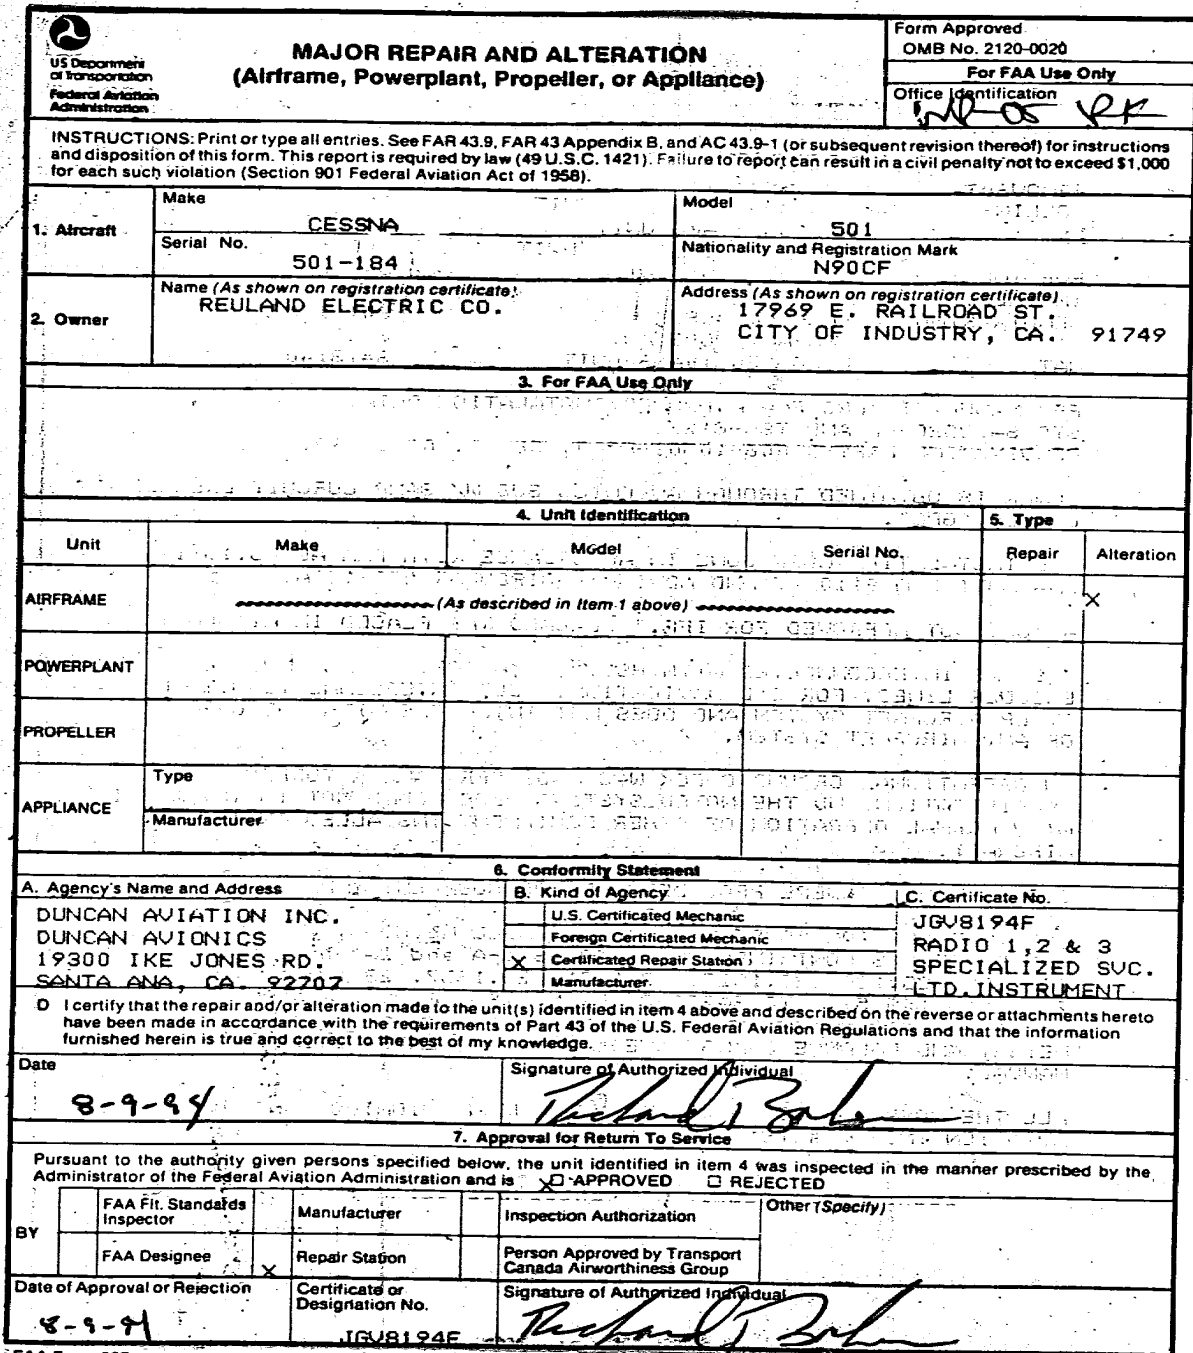 US Department
of Transportation
Federal Aviation
Administration
MAJOR REPAIR AND ALTERATION
(Airframe, Powerplant, Propeller, or Appliance)
Form Approved
OMB No. 2120-0020
For FAA Use Only
Office Identification
INSTRUCTIONS: Print or type all entries. See FAR 43.9, FAR 43 Appendix B, and AC 43.9-1 (or subsequent revision thereof) for instructions
and disposition of this form. This report is required by law (49 U.S.C. 1421). Failure to report can result in a civil penalty not to exceed $1,000
for each such violation (Section 901 Federal Aviation Act of 1958).
1. Aircraft
Make
CESSNA
Model
501
Serial No.
501-184
Nationality and Registration Mark
N90CF
2. Owner
Name (As shown on registration certificate)
REULAND ELECTRIC CO.
Address (As shown on registration certificate)
17969 E. RAILROAD ST.
CITY OF INDUSTRY, CA. 91749
3. For FAA Use Only
4. Unit Identification
5. Type
Unit
Make
Model
Serial No.
Repair
Alteration
AIRFRAME
(As described in Item 1 above)
X
POWERPLANT
PROPELLER
APPLIANCE
Type
Manufacturer
6. Conformity Statement
A. Agency's Name and Address
B. Kind of Agency
C. Certificate No.
DUNCAN AVIATION INC.
DUNCAN AVIONICS
19300 IKE JONES RD.
SANTA ANA, CA. 92707
U.S. Certificated Mechanic
Foreign Certificated Mechanic
X Certificated Repair Station
Manufacturer
JGV8194F
RADIO 1,2 & 3
SPECIALIZED SVC.
LTD.INSTRUMENT
D I certify that the repair and/or alteration made to the unit(s) identified in item 4 above and described on the reverse or attachments hereto
have been made in accordance with the requirements of Part 43 of the U.S. Federal Aviation Regulations and that the information
furnished herein is true and correct to the best of my knowledge.
Date
8-9-94
Signature of Authorized Individual
7. Approval for Return To Service
Pursuant to the authority given persons specified below, the unit identified in item 4 was inspected in the manner prescribed by the
Administrator of the Federal Aviation Administration and is X APPROVED REJECTED
BY
FAA Flt. Standards
Inspector
Manufacturer
Inspection Authorization
Other (Specify)
FAA Designee
X
Repair Station
Person Approved by Transport
Canada Airworthiness Group
Date of Approval or Rejection
8-9-94
Certificate or
Designation No.
JGV8194F
Signature of Authorized Individual